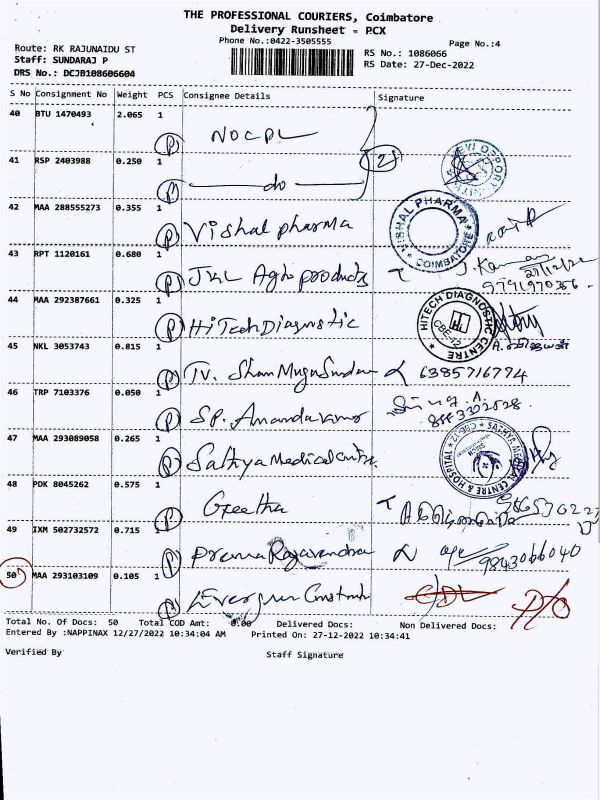 THE PROFESSIONAL COURIERS, Coimbatore
Delivery Runsheet - PCX
Phone No.:0422-3505555
Page No.:4
Route: RK RAJUNAIDU ST
RS No.: 1086066
Staff: SUNDARAJ P
RS Date: 27-Dec-2022
DRS No.: DCJB108606604
S No Consignment No Weight PCS Consignee Details Signature
40 BTU 1470493 2.065 1
(P) NOCPL
2
41 RSP 2403988 0.250 1
(P) do
42 MAA 288555273 0.355 1
(P) Vishal pharma
VISHAL PHARMA COIMBATORE
43 RPT 1120161 0.680 1
(P) JKL Agro products
J. Kannan
27/12/22
9791970356
44 MAA 292387661 0.325 1
(P) HiTech Diagnostic
HITECH DIAGNOSTIC CENTRE CBE-12
45 NKL 3053743 0.815 1
(P) TV. Shan Muga Sundar 6385716774
46 TRP 7103376 0.050 1
(P) SP. Anandakumar
47 MAA 293089058 0.265 1
(P) Sathya Medical Centre
SATHYA MEDICAL CENTRE & HOSPITAL CBE-12
48 PDK 8045262 0.575 1
(P) Geetha
49 IXM 502732572 0.715 1
(P) Prema Rajavendra
9843066040
50 MAA 293103109 0.105 1
(P) Evergreen Constructn
Total No. Of Docs: 50 Total COD Amt: 0.00 Delivered Docs: Non Delivered Docs:
Entered By :NAPPINAX 12/27/2022 10:34:04 AM Printed On: 27-12-2022 10:34:41
Verified By Staff Signature